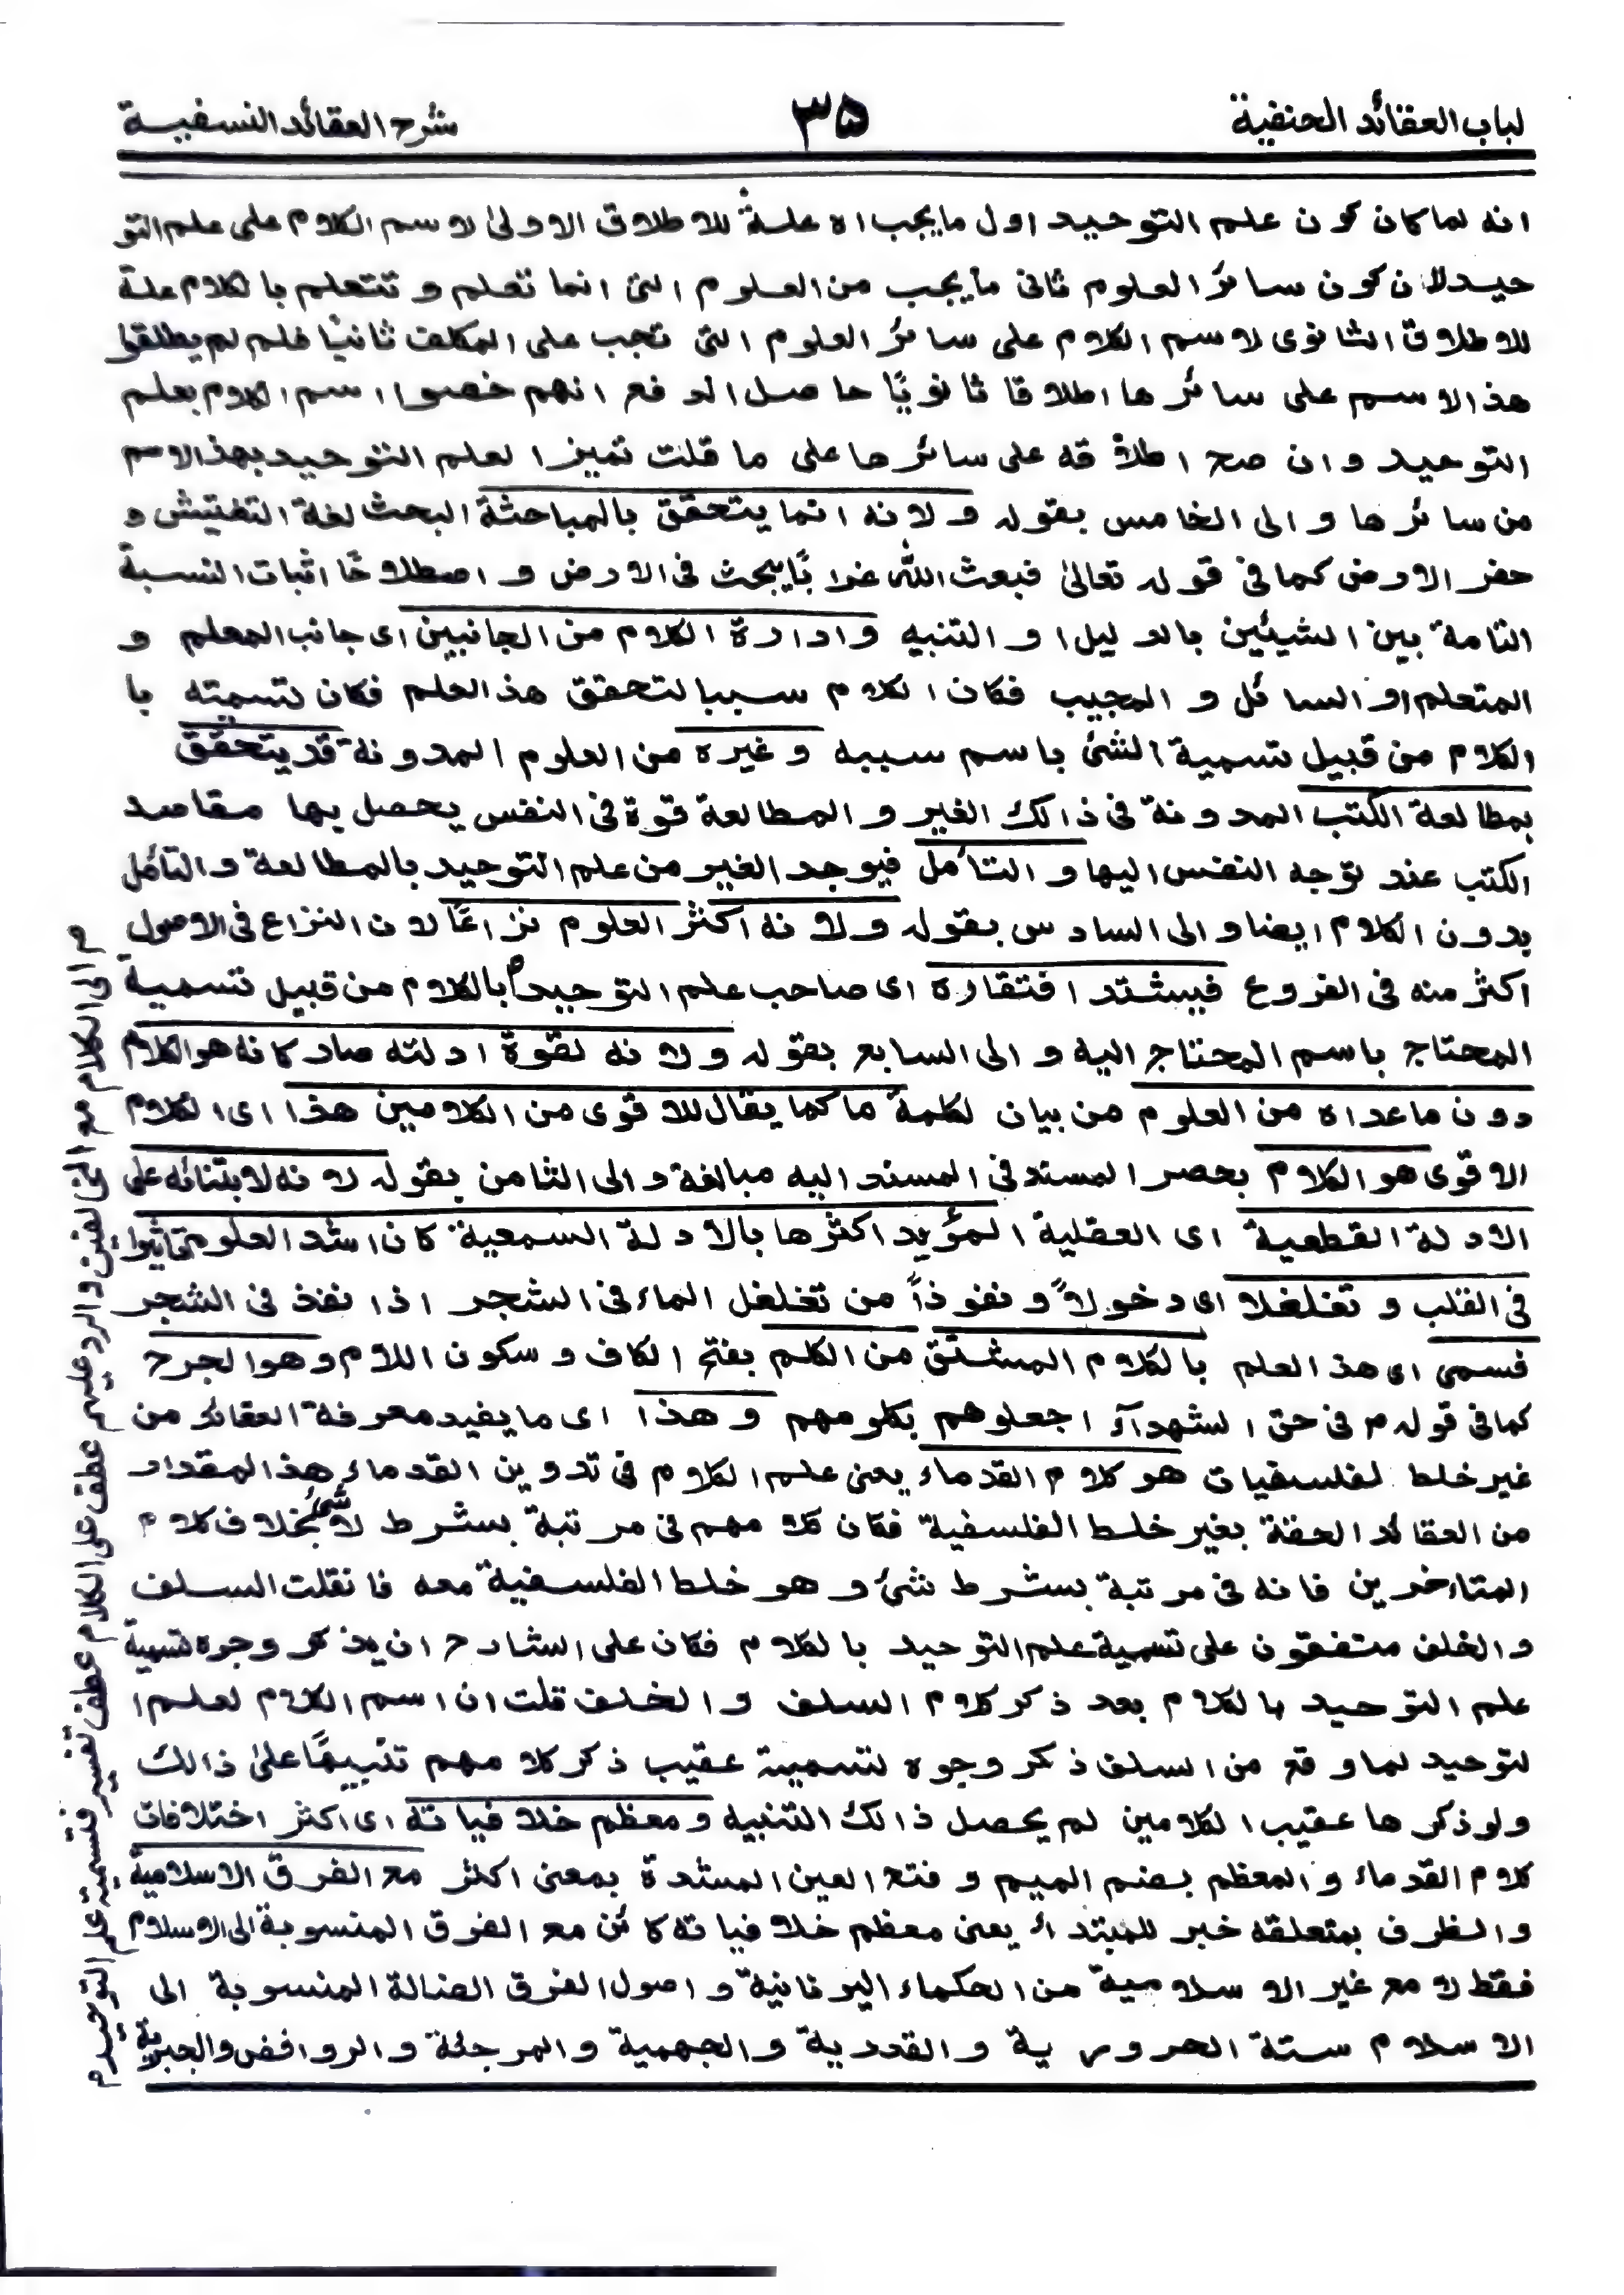 لباب العقائد الحنفية
٣٥
شرح العقائد النسفية
انه لما كان كون علم التوحيد اول ما يجب اه علة للاطلاق الاولى لاسم الكلام على علم التو
حيد لان كون سائر العلوم ثانى ما يجب من العلوم التى انما تعلم و تتعلم بالكلام علة
للاطلاق الثانوى لاسم الكلام على سائر العلوم التى تجب على المكلف ثانيًا فلم لم يطلقوا
هذا الاسم على سائرها اطلاقا ثانويًا حاصل الدفع انهم خصوا اسم الكلام بعلم
التوحيد وان صح اطلاقه على سائرها على ما قلت تميزا لعلم التوحيد بهذا الاسم
من سائرها و الى الخامس بقوله ولانه انما يتحقق بالمباحثة البحث لغة التفتيش و
حفر الارض كما فى قوله تعالىٰ فبعث الله غرابًا يبحث فى الارض و اصطلاحًا اثبات النسبة
التامة بين الشيئين بالدليل او التنبيه وادارة الكلام من الجانبين اى جانب المعلم و
المتعلم او السائل و المجيب فكان الكلام سببا لتحقق هذ العلم فكان تسميته با
الكلام من قبيل تسمية الشئ باسم سببه وغيره من العلوم المدونة قد يتحقق
بمطالعة الكتب المدونة فى ذالك الغير و المطالعة قوة فى النفس يحصل بها مقاصد
الكتب عند توجه النفس اليها و التأمل فيوجد الغير من علم التوحيد بالمطالعة والتأمل
بدون الكلام ايضا و الى السادس بقوله ولانه اكثر العلوم نزاعًا لان النزاع فى الاصول
اكثر منه فى الفروع فيشتد افتقاره اى صاحب علم التوحيد م بالكلام من قبيل تسمية
المحتاج باسم المحتاج اليه و الى السابع بقوله ولانه لقوة ادلته صار كانه هو الكلام
دون ماعداه من العلوم من بيان لكلمة ما كما يقال للاقوى من الكلامين هذا اى الكلام
الاقوى هو الكلام بحصر المسند فى المسند اليه مبالغة و الى الثامن بقوله لانه لابتنائه على
الادلة القطعية اى العقلية المؤيد اكثرها بالادلة السمعية كان اشد العلوم تاثيرا
فى القلب و تغلغلا اى دخولاً و نفوذاً من تغلغل الماء فى الشجر اذا نفذ فى الشجر
فسمى اى هذ العلم بالكلام المشتق من الكلم بفتح الكاف و سكون اللام وهو الجرح
كما فى قوله م فى حق الشهدآء اجعلوهم بكلومهم وهذا اى ما يفيد معرفة العقائد من
غير خلط لفلسفيات هو كلام القدماء يعنى علم الكلام فى تدوين القدماء هذ المقدار
من العقائد الحقة بغير خلط الفلسفية فكان كلامهم فى مرتبة بشرط لا شئ بخلاف كلام
المتاءخرين فانه فى مرتبة بشرط شئ و هو خلط الفلسفية معه فانقلت السلف
و الخلف متفقون على تسمية علم التوحيد بالكلام فكان على الشارح ان يذكر وجوه تسمية
علم التوحيد بالكلام بعد ذكر كلام السلف والخلف قلت ان اسم الكلام لعلم ا
لتوحيد لما وقع من السلف ذكر وجوه لتسمية عقيب ذكر كلامهم تنبيهًا علىٰ ذالك
ولو ذكرها عقيب الكلامين لم يحصل ذالك التنبيه ومعظم خلافياته اى اكثر اختلافات
كلام القدماء والمعظم بضم الميم و فتح العين المشدة بمعنى اكثر مع الفرق الاسلامية
و الظرف بمتعلقه خبر للمبتداء يعنى معظم خلافياته كائن مع الفرق المنسوبة الى الاسلام
فقط لا مع غير الاسلامية من الحكماء اليونانية و اصول الفرق الضالة المنسوبة الى
الاسلام ستة الحرورية والقدرية والجهمية والمرجئة والروافض والجبرية
م الى الكلام مع المخالفين والرد عليهم عطف على الكلام عطف تفسير فتسمية علم التوحيد م